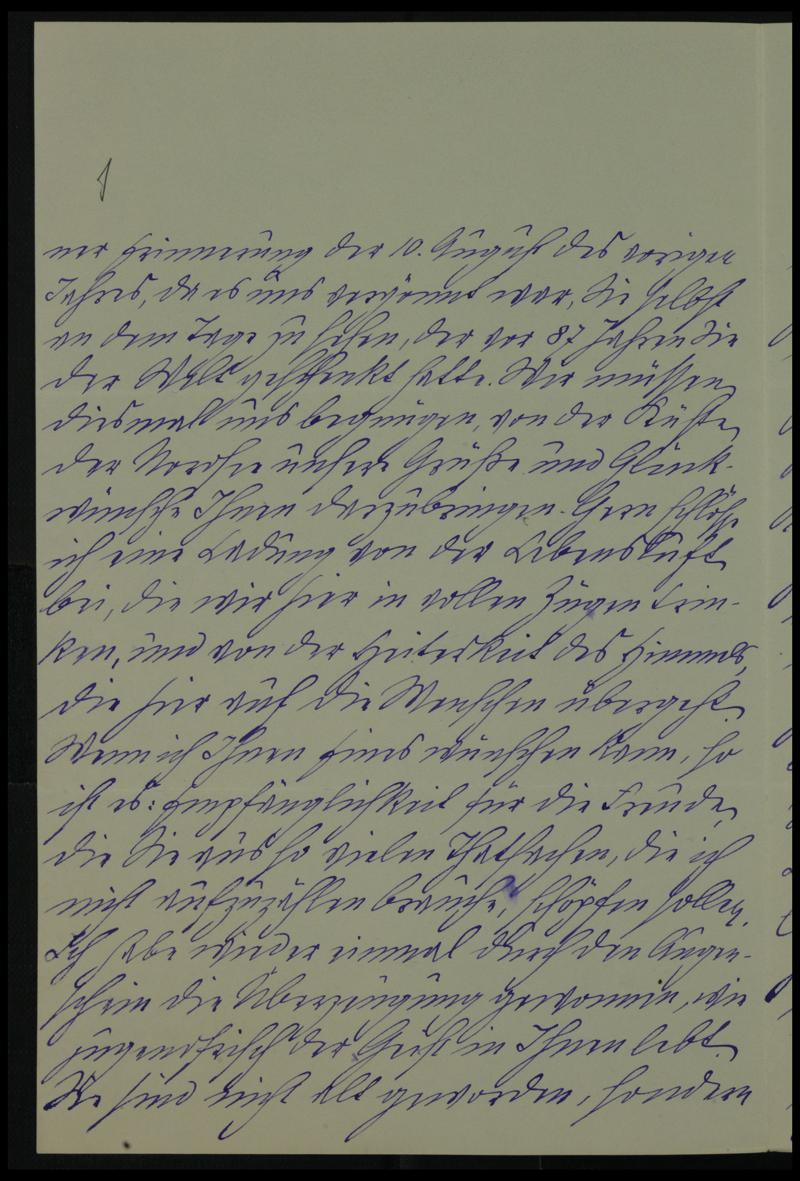 ner Erinnerung der 10. August des vorigen
Jahres, da es uns vergönnt war, Sie selbst
an dem Tage zu sehen, der vor 87 Jahren Sie
der Welt geschenkt hatte. Wir müssen
diesmal uns begnügen, von der Küste
der Nordsee unsere Grüße und Glück-
wünsche Ihnen darzubringen. Gern schlöße
ich eine Ladung von der Lebensluft
bei, die wir hier in vollen Zügen trin-
ken, und von der Heiterkeit des Himmels,
die hier auf die Menschen übergeht.
Wenn ich Ihnen Eines wünschen kann, so
ist es: Empfänglichkeit für die Freude,
die Sie aus so vielen Thatsachen, die ich
nicht aufzuzählen brauche, schöpfen sollen.
Ich habe wieder einmal durch den Augen-
schein die Überzeugung gewonnen, wie
jugendfrisch der Geist in Ihnen lebt.
Sie sind nicht alt geworden, sondern